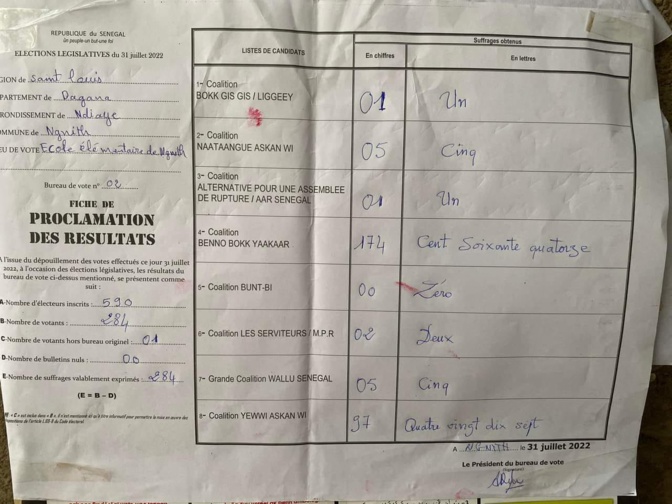 REPUBLIQUE DU SENEGAL
Un peuple-un but-une foi
ELECTIONS LEGISLATIVES du 31 juillet 2022
GION de Saint Louis
PARTEMENT de Dagana
RONDISSEMENT de Ndiaye
OMMUNE de Ngnith
EU DE VOTE Ecole élémentaire de Ngnith
Bureau de vote n° 02
FICHE DE
PROCLAMATION
DES RESULTATS
A l'issue du dépouillement des votes effectués ce jour 31 juillet
2022, à l'occasion des élections législatives, les résultats du
bureau de vote ci-dessus mentionné, se présentent comme
suit :
A-Nombre d'électeurs inscrits : 590
B-Nombre de votants : 284
C-Nombre de votants hors bureau originel : 01
D-Nombre de bulletins nuls : 00
E-Nombre de suffrages valablement exprimés : 284
(E = B – D)
LISTES DE CANDIDATS
Suffrages obtenus
En chiffres
En lettres
1- Coalition
BOKK GIS GIS / LIGGEEY
01
Un
2- Coalition
NAATAANGUE ASKAN WI
05
Cinq
3- Coalition
ALTERNATIVE POUR UNE ASSEMBLEE
DE RUPTURE / AAR SENEGAL
01
Un
4- Coalition
BENNO BOKK YAAKAAR
174
Cent Soixante quatorze
5- Coalition BUNT-BI
00
Zéro
6- Coalition LES SERVITEURS / M.P.R
02
Deux
7- Grande Coalition WALLU SENEGAL
05
Cinq
8- Coalition YEWWI ASKAN WI
97
Quatre vingt dix sept
A NGNITH le 31 juillet 2022
Le Président du bureau de vote